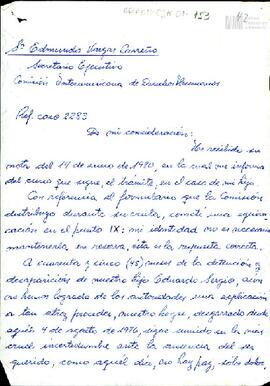 153
Sr Edmundo Vargas Carreño
Secretario Ejecutivo
Comisión Interamericana de Derechos Humanos
Ref. caso 2283
De mi consideración:
He recibido su
nota del 14 de enero de 1980, en la cual me informa
del curso que sigue el trámite, en el caso de mi hijo.
Con referencia al formulario que la Comisión
distribuyó durante su visita, cometí una equivo
cación en el punto IX; mi identidad no es necesario
mantenerla en reserva, esta es la respuesta correcta.
A cuarenta y cinco (45) meses de la detención y
desaparición de nuestro hijo Eduardo Sergio, aún
no hemos logrado de las autoridades una explicación
a tan atroz proceder, nuestro hogar, desgarrado desde
aquel 4 de agosto de 1976, sigue sumido en la más
cruel incertidumbre ante la ausencia del ser
querido, como aquel día, no hay, hay, solo dolor